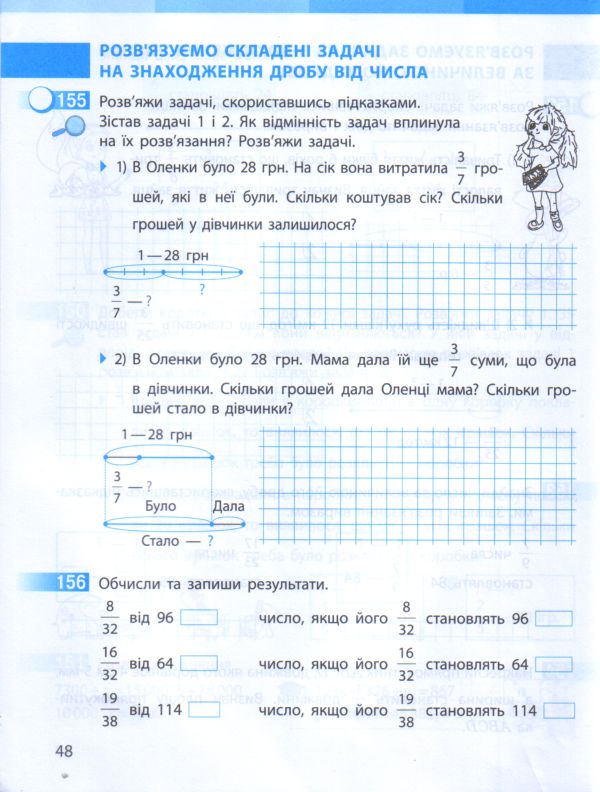 РОЗВ'ЯЗУЄМО СКЛАДЕНІ ЗАДАЧІ
НА ЗНАХОДЖЕННЯ ДРОБУ ВІД ЧИСЛА
155 Розв'яжи задачі, скориставшись підказками.
Зістав задачі 1 і 2. Як відмінність задач вплинула
на їх розв'язання? Розв'яжи задачі.
1) В Оленки було 28 грн. На сік вона витратила 3/7 гро-
шей, які в неї були. Скільки коштував сік? Скільки
грошей у дівчинки залишилося?
1 — 28 грн
?
3/7 — ?
2) В Оленки було 28 грн. Мама дала їй ще 3/7 суми, що була
в дівчинки. Скільки грошей дала Оленці мама? Скільки гро-
шей стало в дівчинки?
1 — 28 грн
3/7 — ?
Було Дала
Стало — ?
156 Обчисли та запиши результати.
8/32 від 96 число, якщо його 8/32 становлять 96
16/32 від 64 число, якщо його 16/32 становлять 64
19/38 від 114 число, якщо його 19/38 становлять 114
48